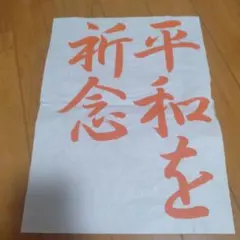 平和を
祈念